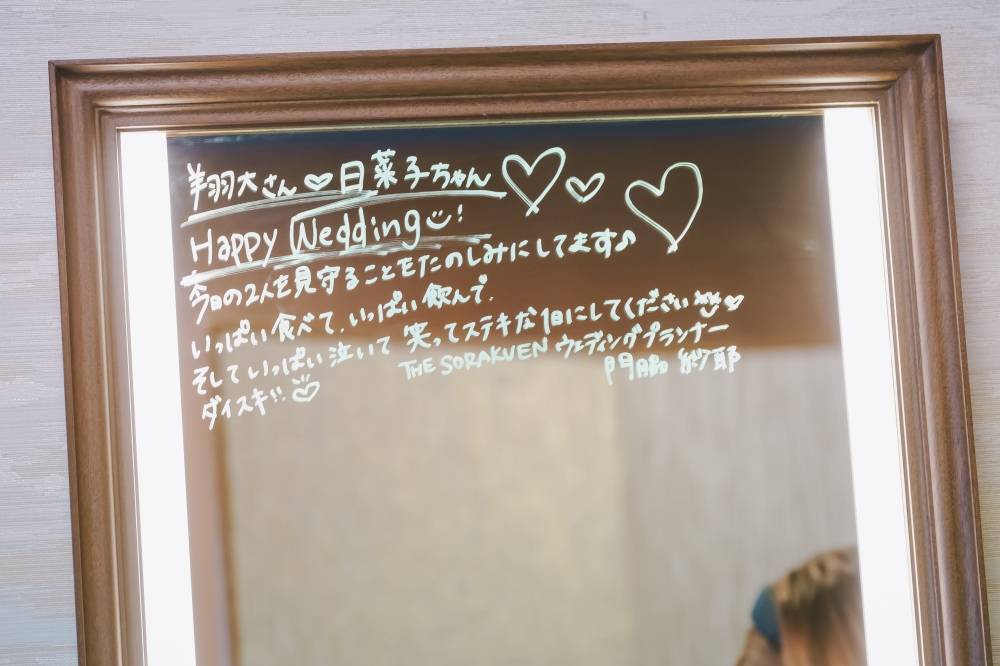 翔大さん♡日菜子ちゃん♡♡♡
Happy Wedding!
今日の2人を見守ることをたのしみにしてます♪
いっぱい食べて、いっぱい飲んで、
そしていっぱい泣いて 笑ってステキな1日にしてください♡
ダイスキ!!♡
THE SORAKUEN ウェディングプランナー
門脇 紗耶